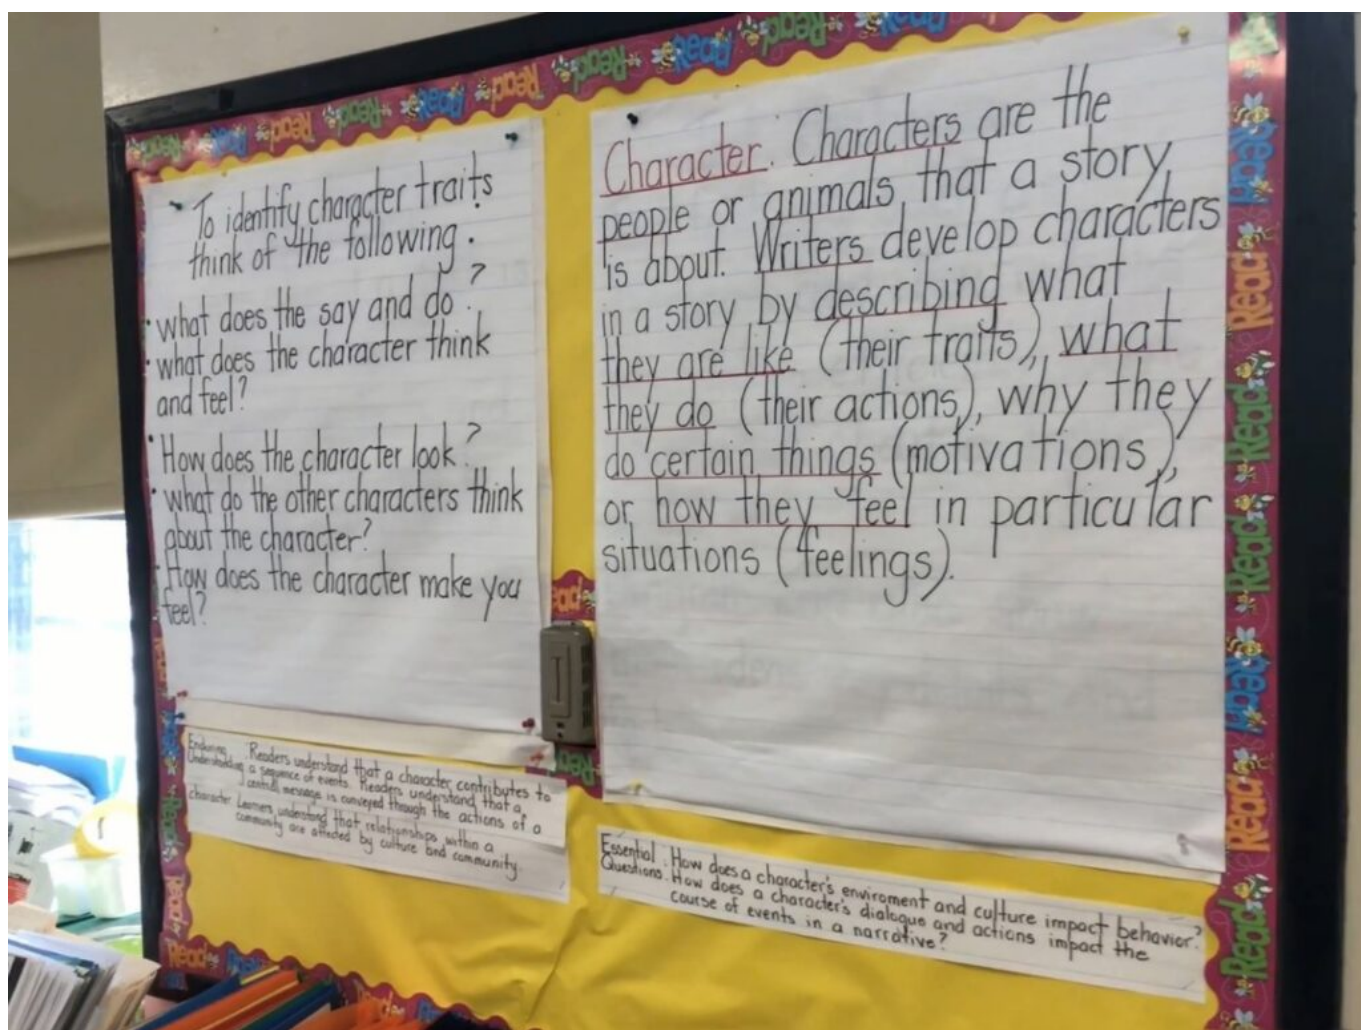 To identify character traits
think of the following.
• what does the say and do?
• what does the character think
and feel?
• How does the character look?
• what do the other characters think
about the character?
• How does the character make you
feel?
Enduring Understanding. Readers understand that a character contributes to
a sequence of events. Readers understand that a
central message is conveyed through the actions of a
character Learners understand that relationships within a
community are affected by culture and community.
Character. Characters are the
people or animals that a story
is about. Writers develop characters
in a story by describing what
they are like (their traits), what
they do (their actions), why they
do certain things (motivations),
or how they feel in particular
situations (feelings).
Essential. How does a character's enviroment and culture impact behavior?
Questions. How does a character's dialogue and actions impact the
course of events in a narrative?
Read Read Read Read Read Read Read Read Read
Read
Read
Read
Read
Read
Read
Read
Read
Read